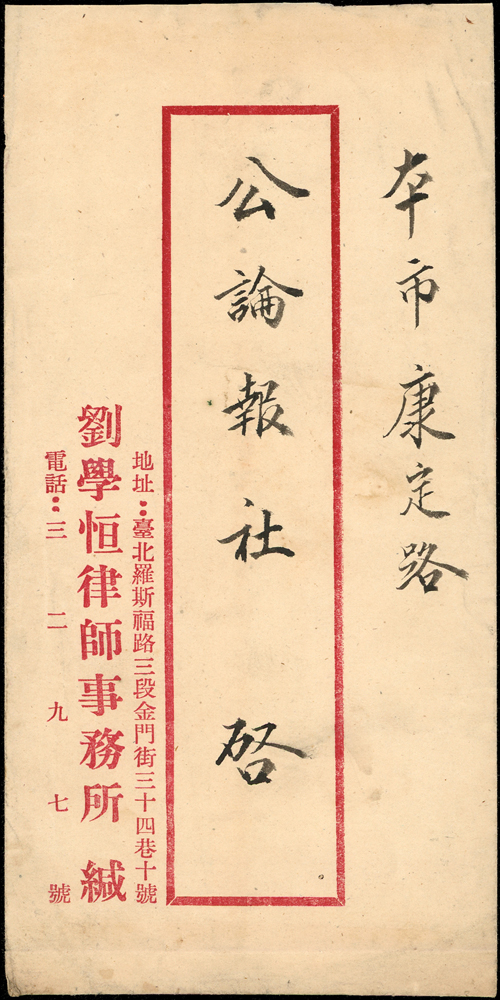 本市康定路
公論報社 啓
地址:臺北羅斯福路三段金門街三十四巷十號
劉學恒律師事務所 緘
電話:三二九七號